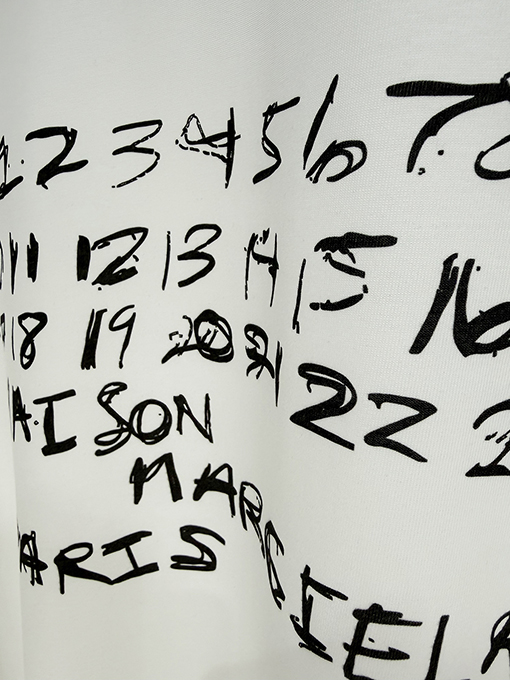 2 3 4 5 6 7
11 12 13 14 15 16
18 19 20 21 22 2
AISON
MARGIELA
ARIS